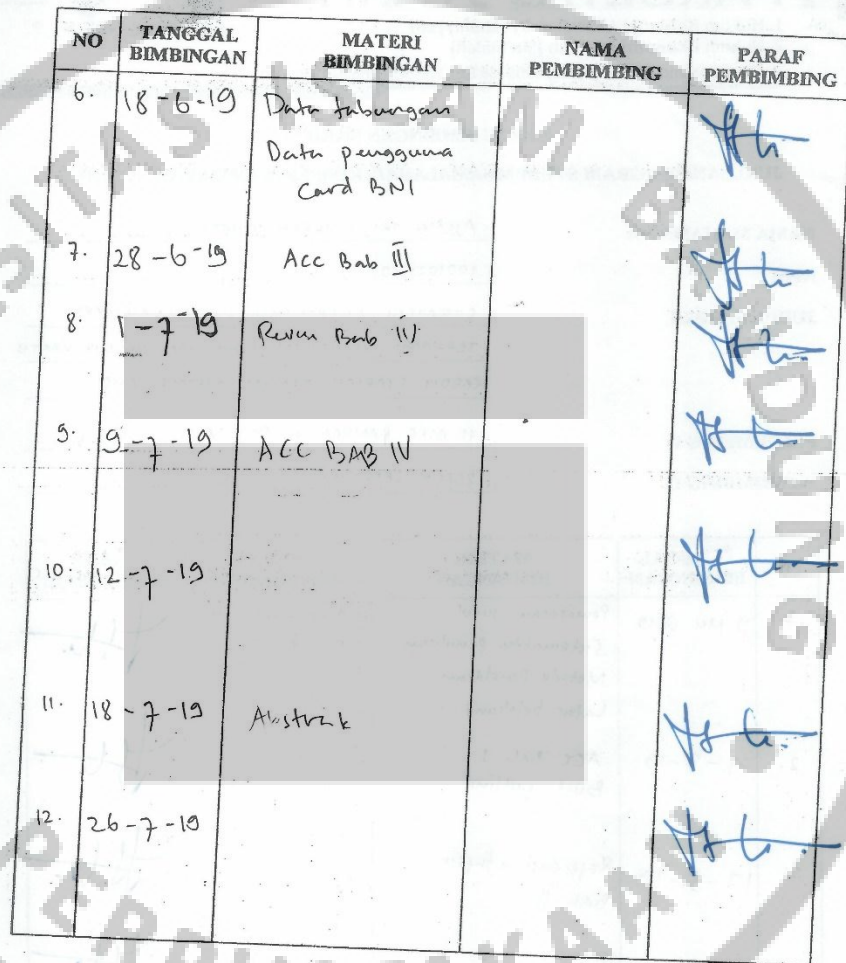 NO TANGGAL BIMBINGAN MATERI BIMBINGAN NAMA PEMBIMBING PARAF PEMBIMBING
6. 18-6-19 Data tabungan
Data pengguna
Card BNI
7. 28-6-19 Acc Bab III
8. 1-7-19 Bab IV
9. 9-7-19 ACC BAB IV
10. 12-7-19
11. 18-7-19 Abstrak
12. 26-7-19
SITAS ISLAM BANDUNG
PERPUSTAKAAN